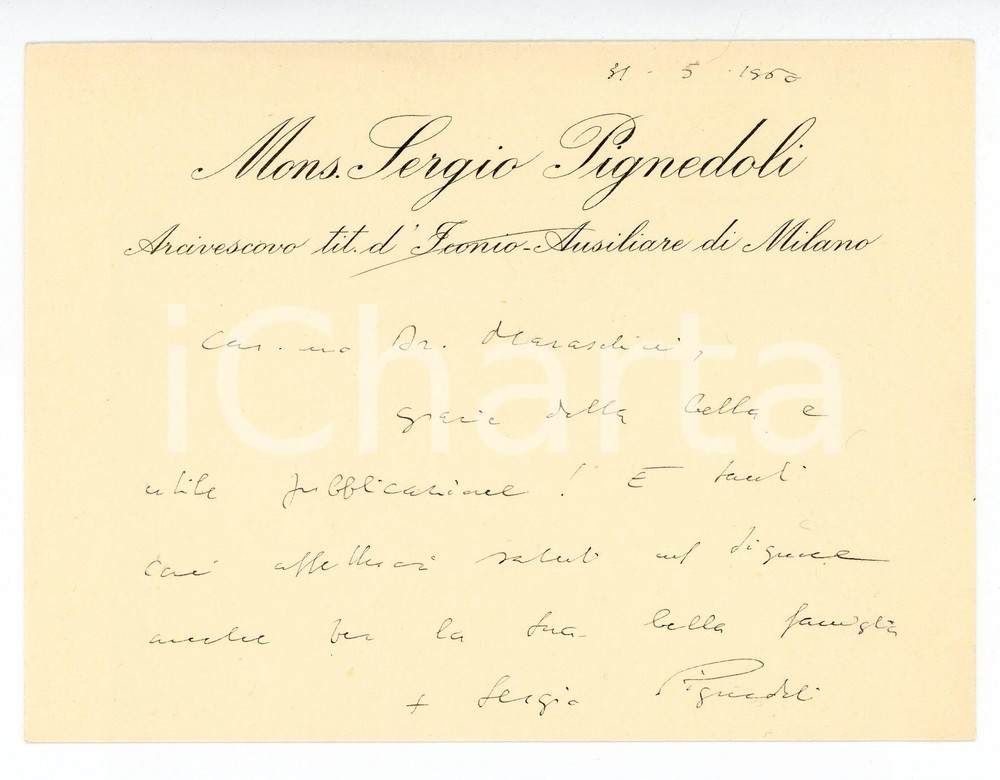 31 · 5 · 1960
Mons. Sergio Pignedoli
Arcivescovo tit. d' Iconio - Ausiliare di Milano
iCharta
Car.mo Dr.
grazie della bella e
utile pubblicazione! E tanti
cari affettuosi saluti nel Signore
anche per la Sua bella famiglia
+ Sergio Pignedoli